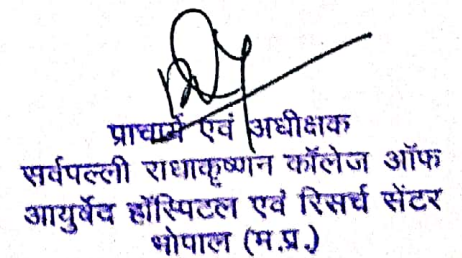 प्राचार्य एवं अधीक्षक
सर्वपल्ली राधाकृष्णन कॉलेज ऑफ
आयुर्वेद हॉस्पिटल एवं रिसर्च सेंटर
भोपाल (म.प्र.)